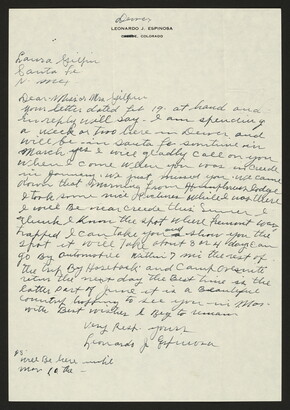 Denver
LEONARDO J. ESPINOSA
COLORADO
Laura Gilpin
Santa Fe
N. Mex
Dear Miss or Mrs. Gilpin
your letter dated Feb 19. at hand and
In reply will say. I am spending
a week or two here in Denver and
will be in Santa Fe sometime in
March, yes I will gladly call on you
when I come when you was in Creede
in January we just missed you. we came
down that morning from Humphreys Lodge
I took some nice pictures while I was there
I will be near Creede this Summer. I
think I know the spot where Fremont was
trapped I can take you and show you the
spot it will take about 3 or 4 days can
go By automobile within 7 mi the rest of
the trip By Horseback and Camp Overnite
return the next day the Best time is the
latter part of June it is a Beautiful
country hopping to see you in Mar-
with Best wishes I Beg to remain
Very Resp. yours
Leonardo J. Espinosa
PS.
will Be here until
Mar 10 th -